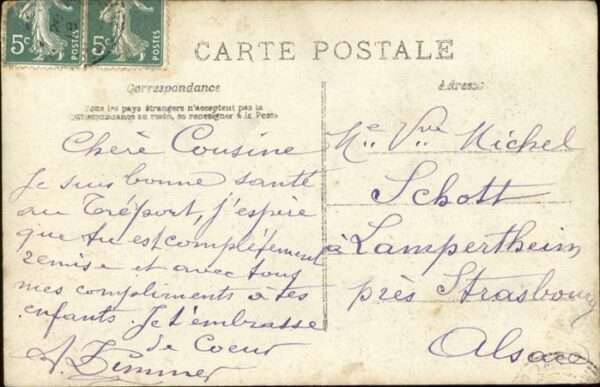 5c POSTES 5c POSTES
CARTE POSTALE
Correspondance
Tous les pays étrangers n'acceptent pas la
Correspondance au recto, se renseigner à la Poste
Chère Cousine
Je suis bonne santé
au Tréport, j'espère
que tu est complétement
remise et avec tous
mes compliments à tes
enfants. Je t'embrasse
de Coeur
A. Zimmer
Adresse
Me Vve Michel
Schott
à Lampertheim
près Strasbourg
Alsace